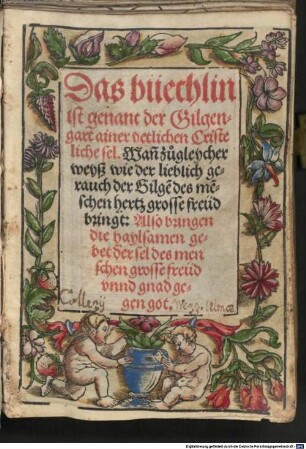 Das büechlin
ist genant der Gilgen-
gart ainer yetlichen Criste
liche sel. Wañ zůgleycher
weyß wie der lieblich ge-
rauch der Gilgẽ des mẽ-
schen hertz grosse freüd
bringt: Also bringen
die haylsamen ge-
bet der sel des men
schen grosse freüd
vnnd gnad ge-
gen got.
Collegij